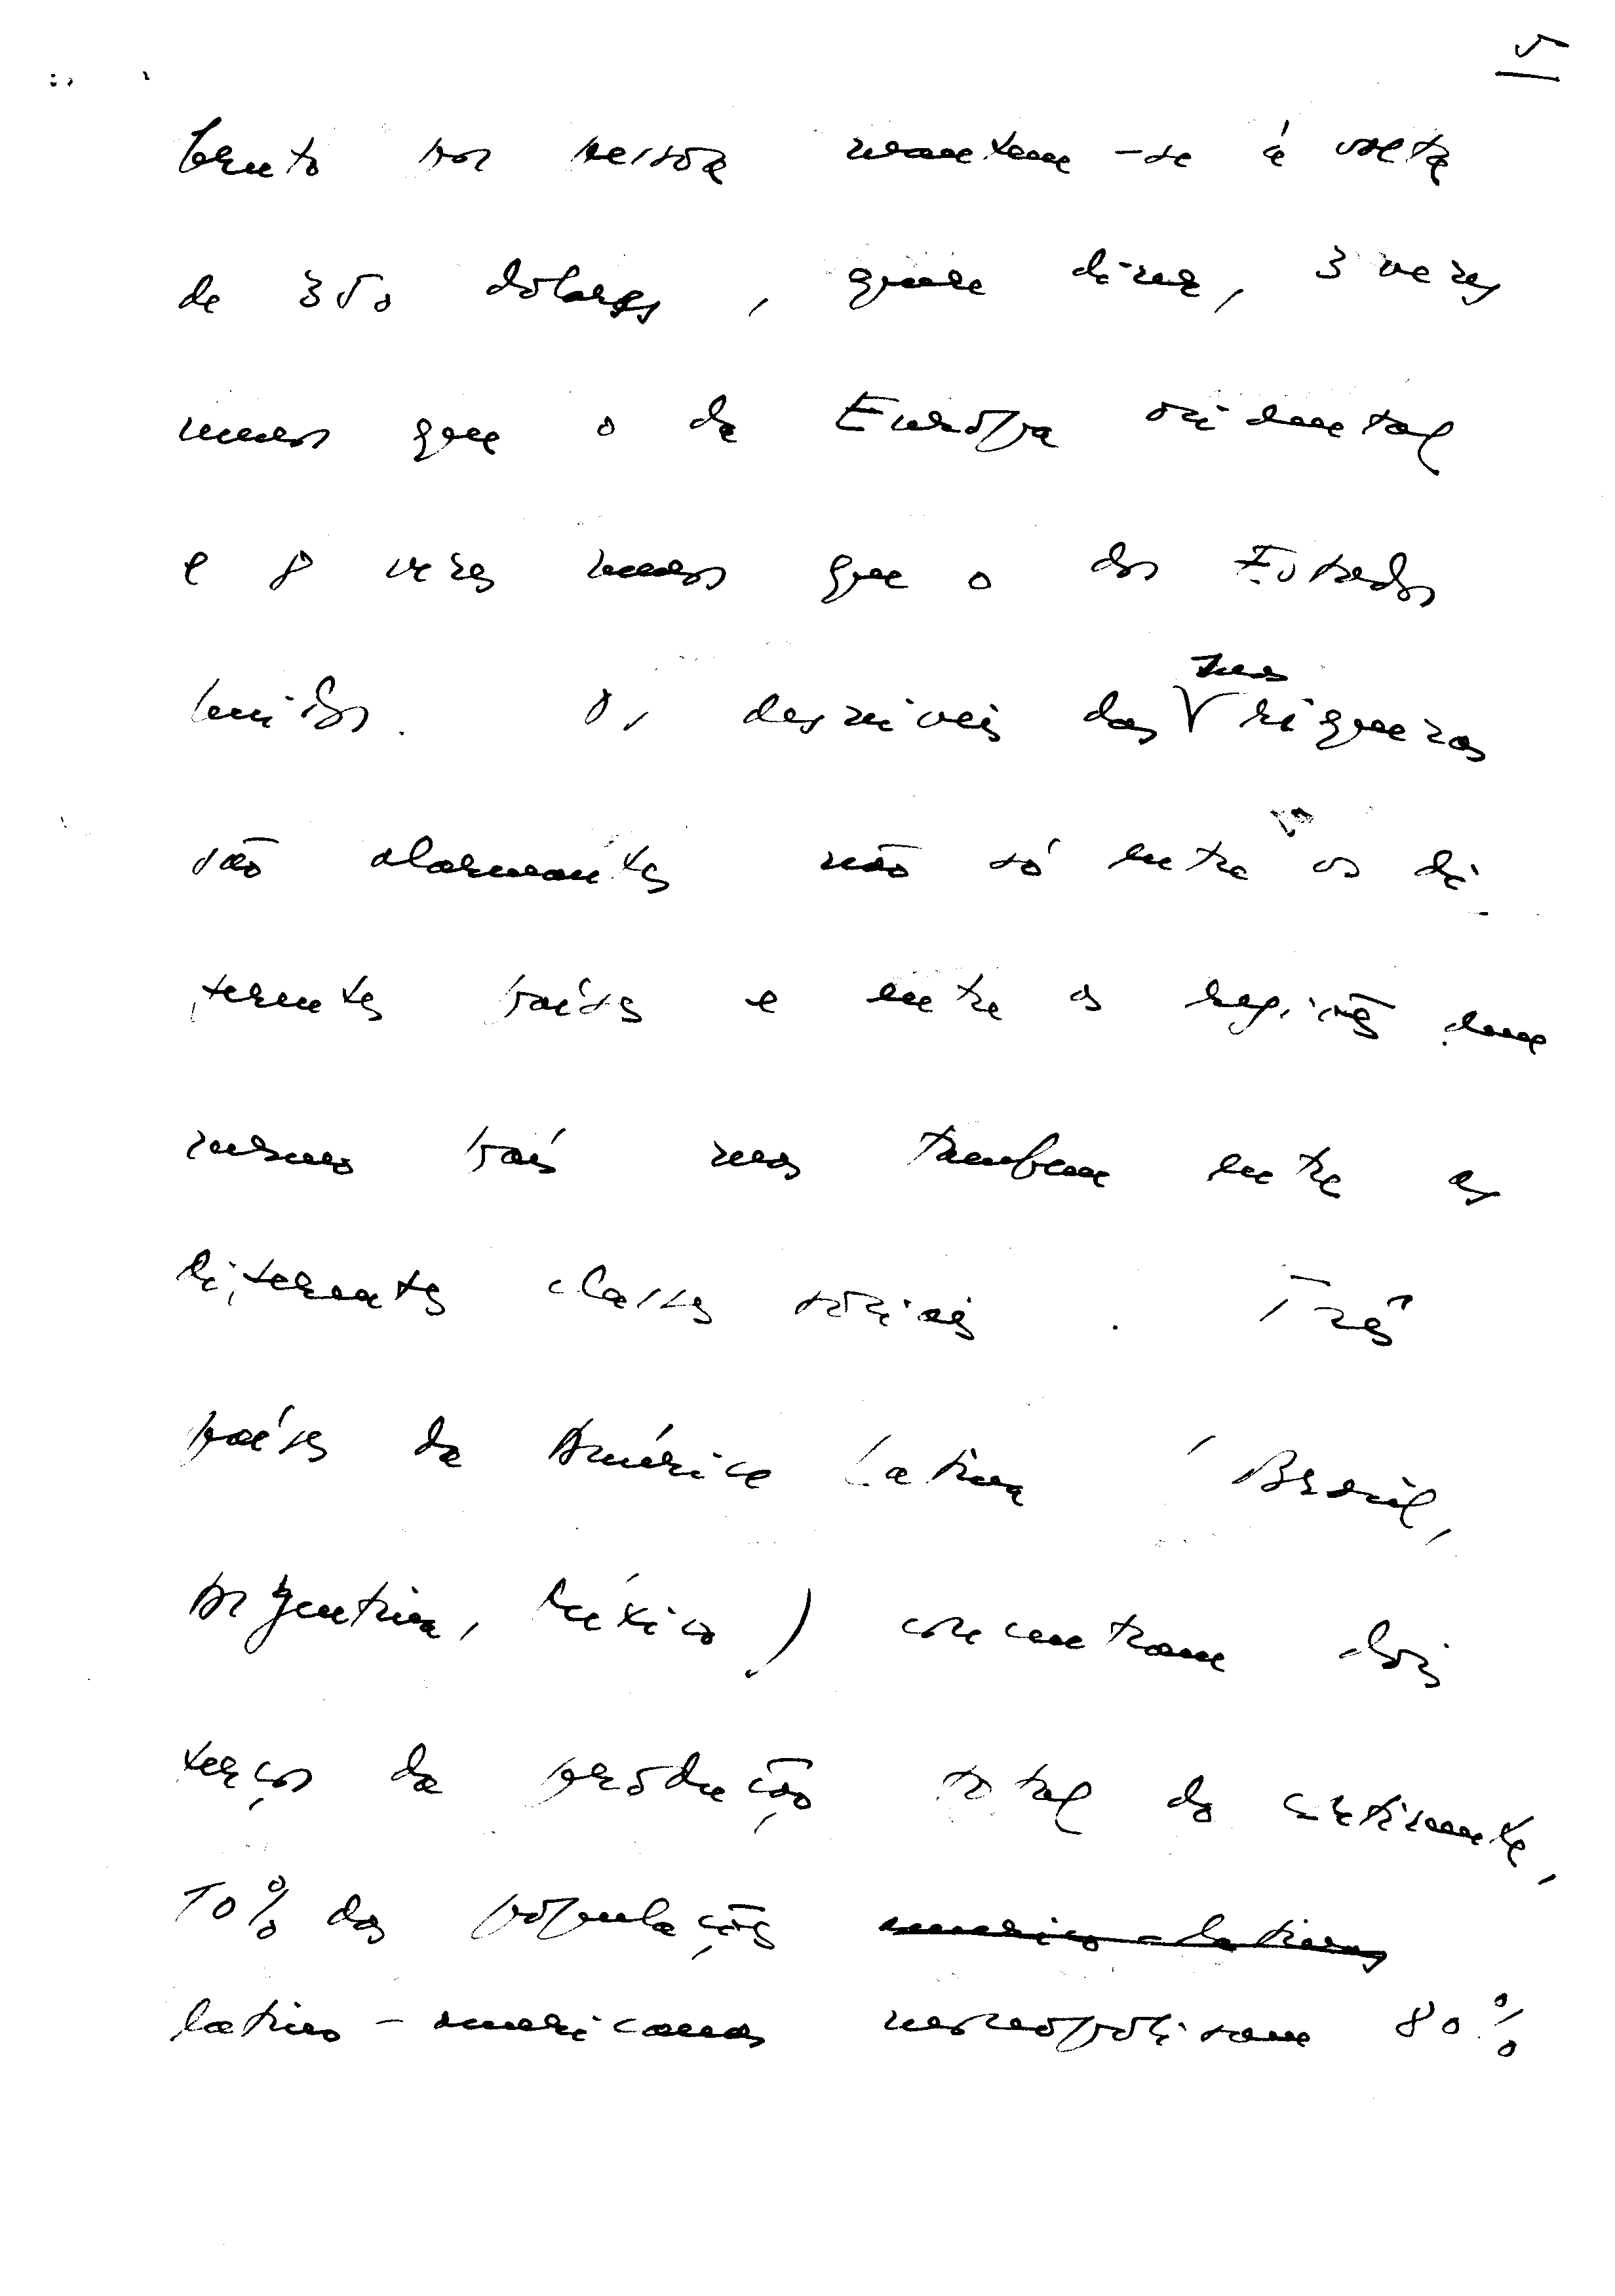 5
bruto por pessoa mantem-se à volta
de 350 dolares, quere dizer, 3 vezes
menos que o da Europa ocidental
e 8 vezes menos que o dos Estados
Unidos. Os desniveis das suas riquezas
são alarmantes não só entre os di
ferentes países e entre as regiões dum
mesmo país mas tambem entre as
diferentes classes sociais. Três
países da América Latina (Brasil,
Argentina, México) concentram dois
terços da produção total do continente,
10% das populações americo-latinas
latino-americanas monopolisam 80%